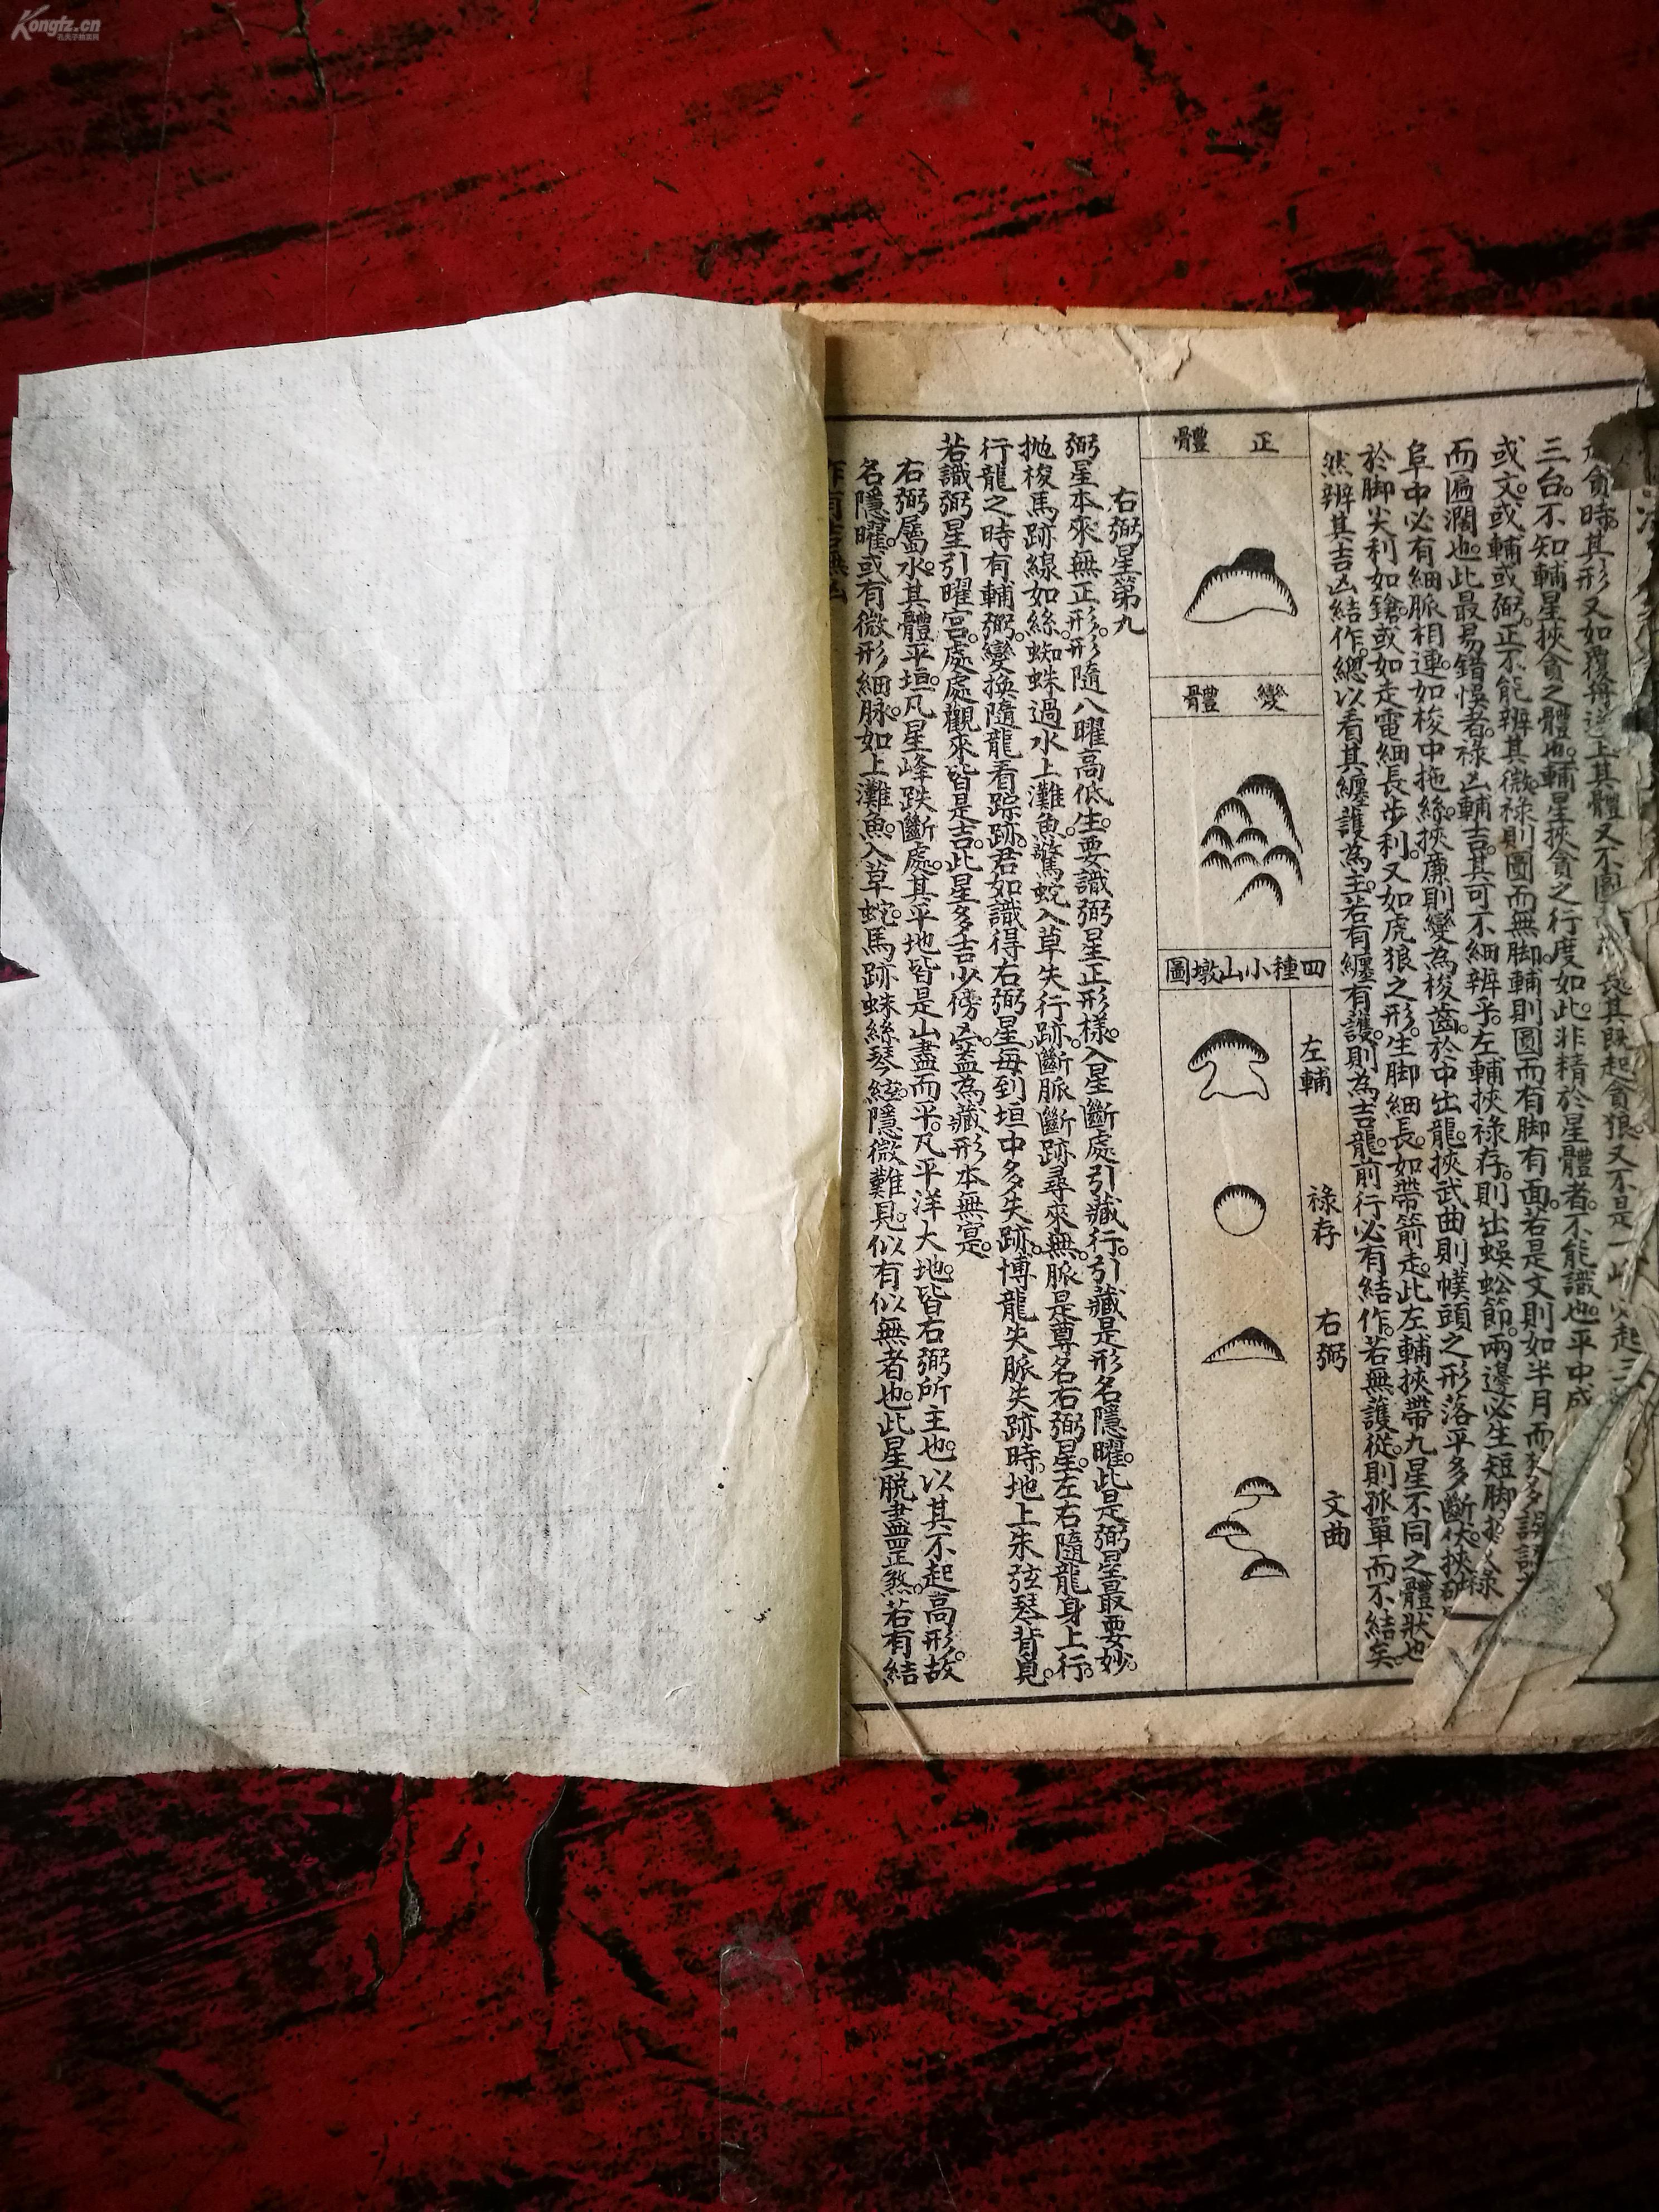 Kongfz.cn
貪時其形又如覆舟
其體又不圓
長其既起貪狼又不是一
三台。不知輔星挾貪之體也。輔星挾貪之行度如此。非精於星體者。不能識也。平中成
或文。或輔或弼。正不能辨其微。祿則圓而無脚。輔則圓而有脚有面。若是文則如半月而
而匾濶也。此最易錯悞者。祿凶輔吉。其可不細辨乎。左輔挾祿存。則出蜈蚣節。兩邊必生短脚
阜中必有細脈相連。如梭中拖絲。挾廉則變為梭齒。於中出龍。挾武曲則幞頭之形。落平多斷伏。挾
於脚尖利如鎗。或如走電細長步利。又如虎狼之形。生脚細長。如帶箭走。此左輔挾帶九星不同之體狀也
然辨其吉凶結作。總以看其纏護為主。若有纏有護。則為吉龍。前行必有結作。若無護從。則孤單而不結矣。
正體
變體
四種小山墩圖
左輔
祿存
右弼
文曲
右弼星第九
弼星本來無正形。形隨八曜高低生。要識弼星正形樣。入星斷處引藏行。引藏是形名隱曜。此是弼星最要妙。
抛梭馬跡線如絲。蜘蛛過水上灘魚。驚蛇入草失行跡。斷脈斷跡尋來無。脈是尊名右弼星。左右隨龍身上行。
行龍之時有輔弼。變換隨龍看踪跡。君如識得右弼星。每到垣中多失跡。博龍失脈失跡時。地上朱弦琴背覓。
若識弼星引曜宮。處處觀來皆是吉。此星多吉少傍凶。蓋為藏形本無寔。
右弼屬水。其體平垣。凡星峰跌斷處。其平地皆是山盡而平。凡平洋大地。皆右弼所主也。以其不起高形。故
名隱曜。或有微形細脉。如上灘魚。入草蛇。馬跡蛛絲琴絃。隱微難見。似有似無者也。此星脫盡罡煞。若有結